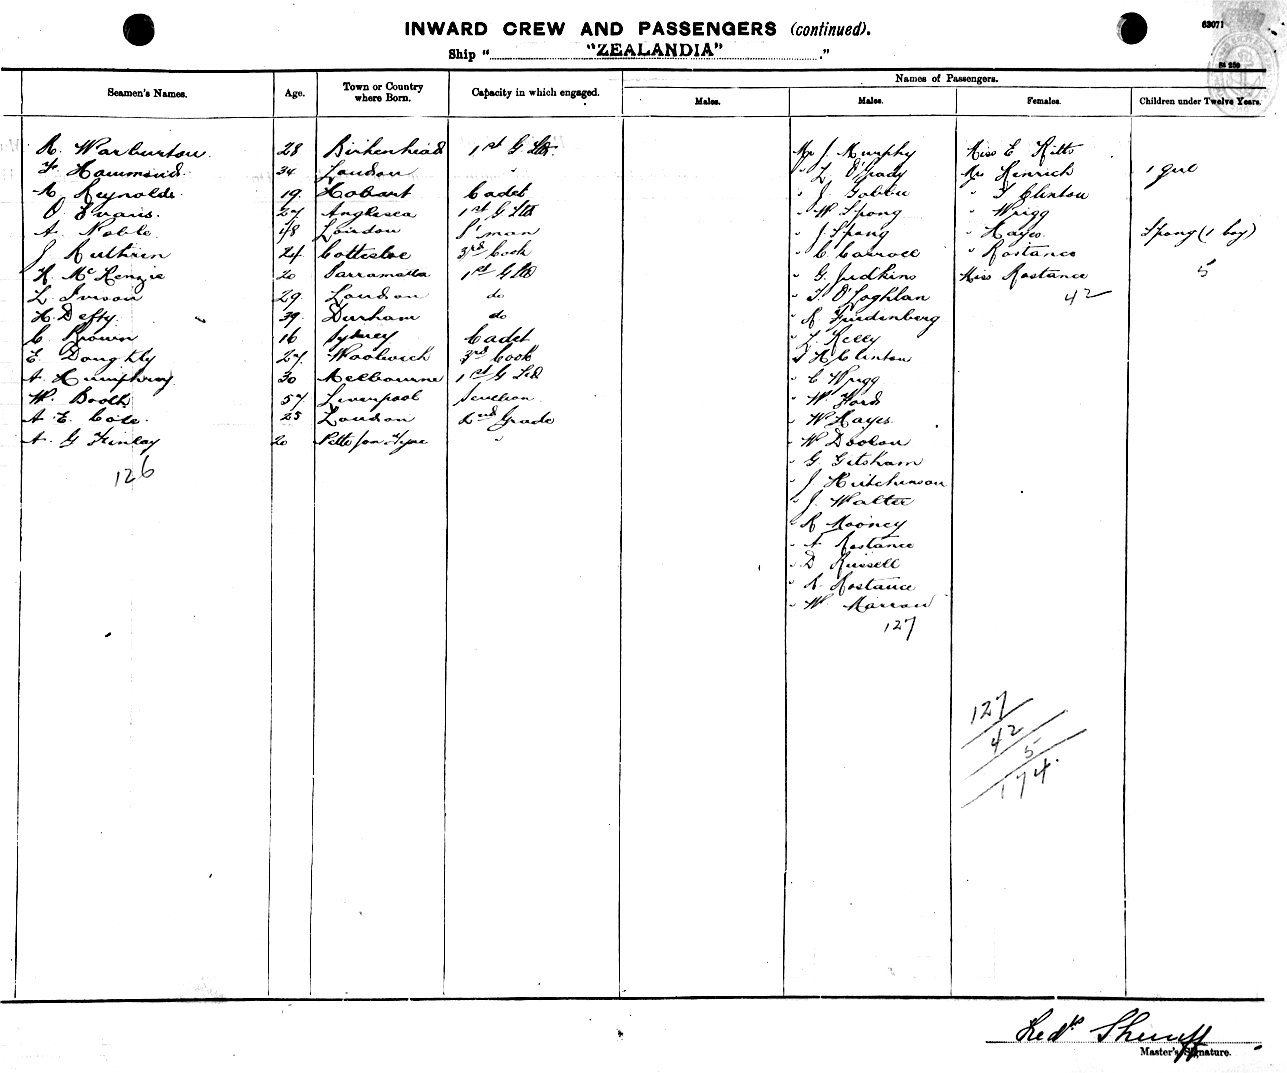 INWARD CREW AND PASSENGERS (continued).
63071
Ship " "ZEALANDIA" "
Seamen's Names. Age. Town or Country where Born. Capacity in which engaged. Names of Passengers.
Males. Males. Females. Children under Twelve Years.
R. Warburton. 28 Birkenhead 1st G Str.
F. Hammond. 34 London "
A Reynolds. 19. Hobart Cadet
O Evans. 27 Anglesea 1st G Std
A. Noble. 48 London S'man
J Ruthrin 24 Cottesloe 3rd Cook
H. McKenzie 20 Parramatta 1st G Std
L. Iveson 29. London do
H. Defty. 39. Durham do
C Brown 16 Sydney Cadet
E. Doughty 27. Woolwich 3rd Cook
A. Humphrey. 30 Melbourne 1st G Std
W. Booth 57 Liverpool Scullion
A. E. Cole. 25 London 2nd Grade
A. G Finlay 20 "
126
Mr J. Murphy
" L O'Grady
" J
" W Spong
" J Spong
" C Carroll
" G. Judkins
" T O'Loghlan
" R Fredenberg
" L. Kelly
" T H Clinton
" C Wrigg
" W Ford
" W Hayes
" W Doolan
" G. Gitsham
" J Hutchinson
" J. Walter
" R Mooney
" A Rostance
" D Russell
" R. Rostance
" W.
127
Miss E
Mrs Henrich
" T Clinton
" Wrigg
" Hayes.
" Rostance
Miss Rostance
42
1 girl
Spong (1 boy)
5
127
42
5
174.
Fredk Sherriff
Master's Signature.